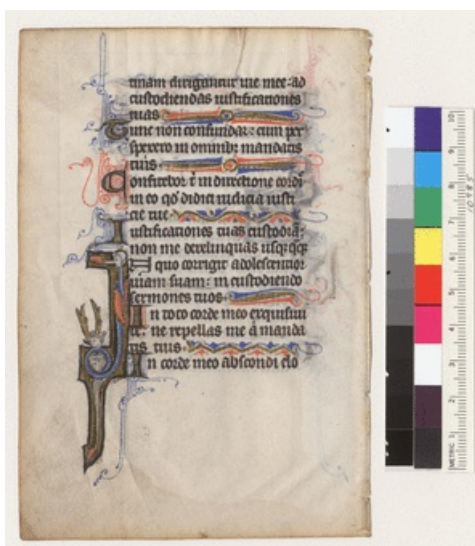 tinam dirigantur uie mee: ad
custodiendas iustificationes
tuas
Tunc non confundar: cum per
spexero in omnib; mandatis
tuis
Confitebor t in directione cordi
in eo qd didici iudicia iusti
cie tue
iustificationes tuas custodia
non me derelinquas usq;
In quo corrigit adolescentior
uiam suam: in custodiendo
sermones tuos
In toto corde meo exquisiui
te: ne repellas me a manda
tis tuis
In corde meo abscondi elo
METRIC 1 2 3 4 5 6 7 8 9 10